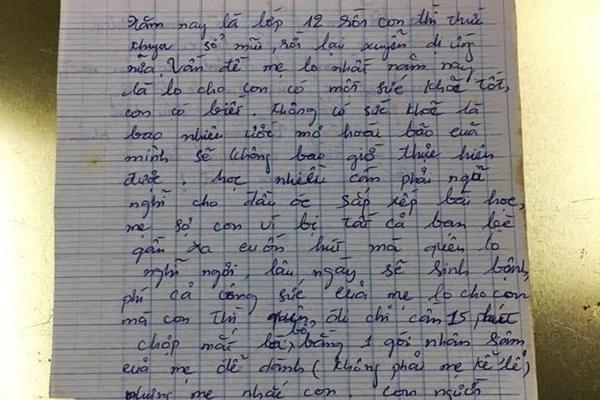 Năm nay là lớp 12 rồi con thì thức
khuya sổ mũi, rồi lại xuyễn dị ứng
nữa. Vấn đề mẹ lo nhất năm nay
là lo cho con có một sức khoẻ tốt,
con có biết không có sức khoẻ là
bao nhiêu ước mơ hoài bão của
mình sẽ không bao giờ thực hiện
được. học nhiều cần phải ngủ
nghĩ cho đầu óc sắp xếp bài học,
mẹ sợ con vì bị tất cả bạn bè
gần xa cuốn hút mà quên lo
nghĩ ngơi, lâu ngày sẽ sinh bệnh,
phí cả công sức của mẹ lo cho con
mà con thì quên, đi chỉ cần 15 phút
chợp mắt là bổ bằng 1 gói nhân sâm
của mẹ để dành (không phải mẹ kể lể)
nhưng mẹ nhắc con. con người